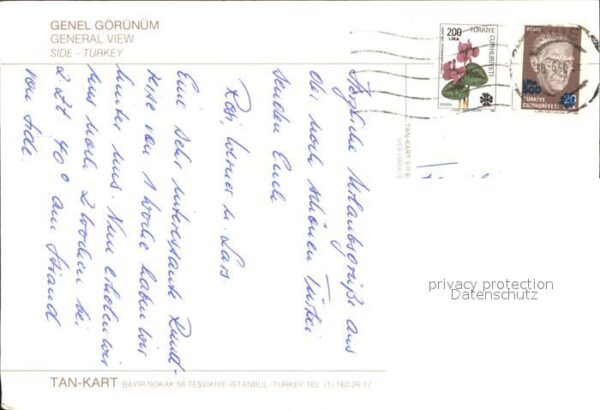 GENEL GÖRÜNÜM
GENERAL VIEW
SIDE - TURKEY
200
LIRA
TÜRKİYE
CUMHURİYETİ
POSTA
500
20
TÜRKİYE
CUMHURİYETİ
Herzliche Urlaubsgrüße aus
der noch schönen Türkei
senden Euch
Rosi, Werner u. Lars.
Eine sehr interessante Rund-
reise von 1 Woche haben wir
hinter uns. Nun erholen wir
uns noch 2 Wochen bei
z. Zt 40° am Strand
von Side.
TAN-KART
privacy protection
Datenschutz
TAN-KART BAYIR SOKAK 58 TEŞVİKİYE-İSTANBUL / TÜRKEY TEL: (1) 160 26 17